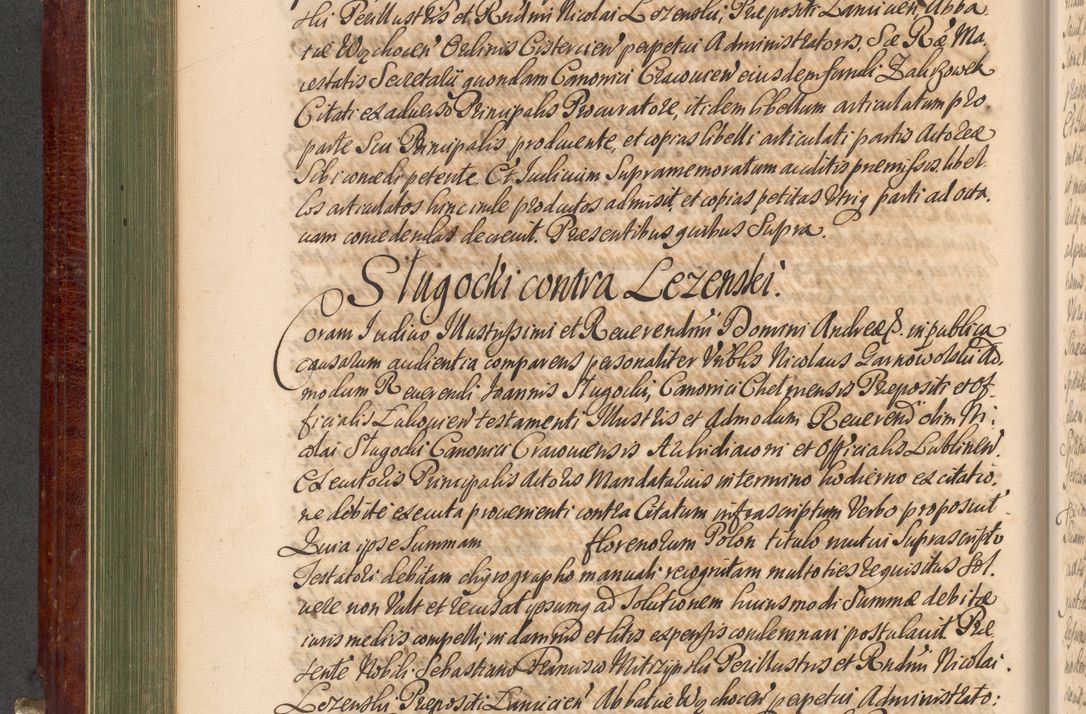 ski Perillustris et Rndmi Nicolai Lezenski, Praepositi Lanicien, Abba
tiae Wąchocen Ordinis Cistercien perpetui Administratoris, Sae Rae Ma
iestatis Secretarii quondam Canonici Cracovien eiusdem fundi Zakrzowek
Citati ex adverso Principalis Procuratore, itidem libellum articulatum pro
parte Sui Principalis producente, et copias libelli articulati partis Actoreae
Sibi concedi petente. Et Iudicium Supramemoratum auditis praemissis, libel
los articulatos hinc inde productos admisit, et copias petitas Utriq parti ad octa
vam concedendas decrevit. Presentibus quibus Supra.
Sługocki contra Lezenski.
Coram Iudicio Illustrissimi et Reverendmi Domini Andreae P. in publica
causarum audientia comparens personaliter Nobilis Nicolaus Garnowolski Ad
modum Reverendi Ioannis Sługocki, Canonici Chelmensis Praepositi et Of
ficialis testamenti Illustris et Admodum Reverend olim Ni
colai Sługocki Canonici Cracoviensis Archidiaconi et Officialis Lublinen
Executoris Principalis Actoris Mandatarius in termino hodierno ex citatio
ne debite executa provenienti contra Citatum infrascriptum Verbo proposuit
Quia ipse Summam florenorum Polon titulo mutui Suprascripto
Testatori debitam chyrographo manuali recognitam multoties requisitus Sol
vere non Vult et recusat ipsumq ad Solutionem huiusmodi Summae debitae
iuris mediis compelli, in damnis et litis expensis condemnari postulavit. Prae
sente Nobili Sebastiano Francisco Perillustris et Rndmi Nicolai
Lezenski Praepositi Lanicien Abbatiae Wąchocen perpetui Administrato: